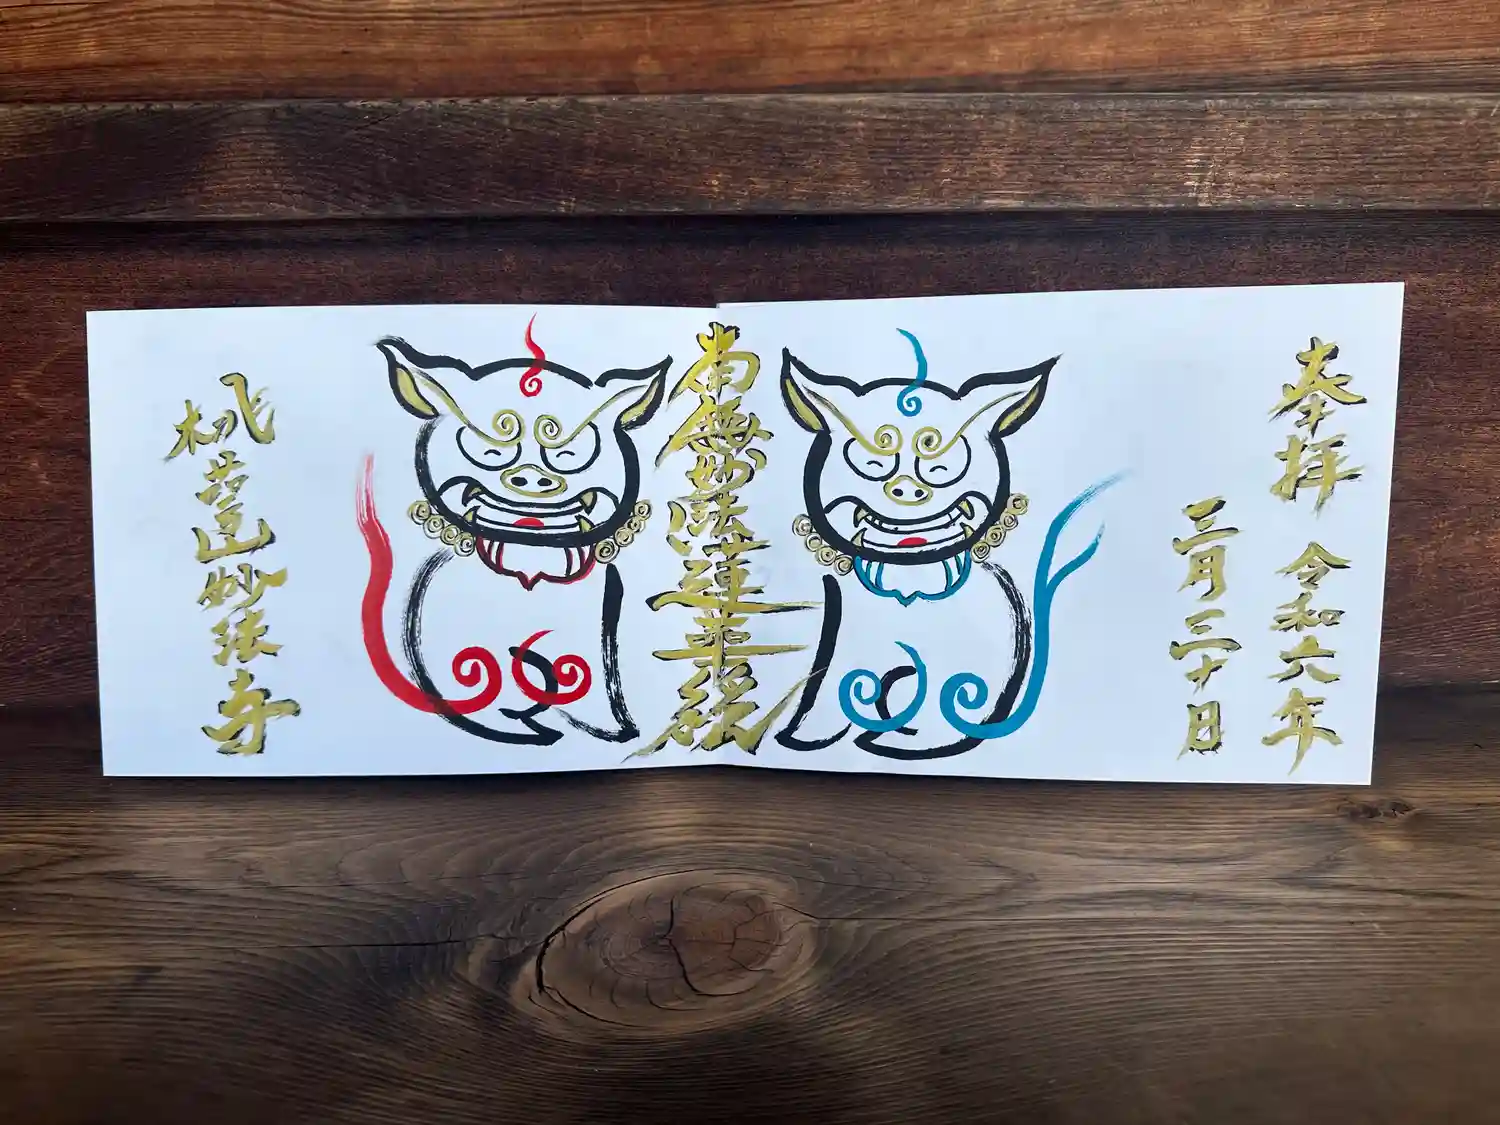 奉拝 令和六年
三月三十日
南無妙法蓮華経
妙法寺